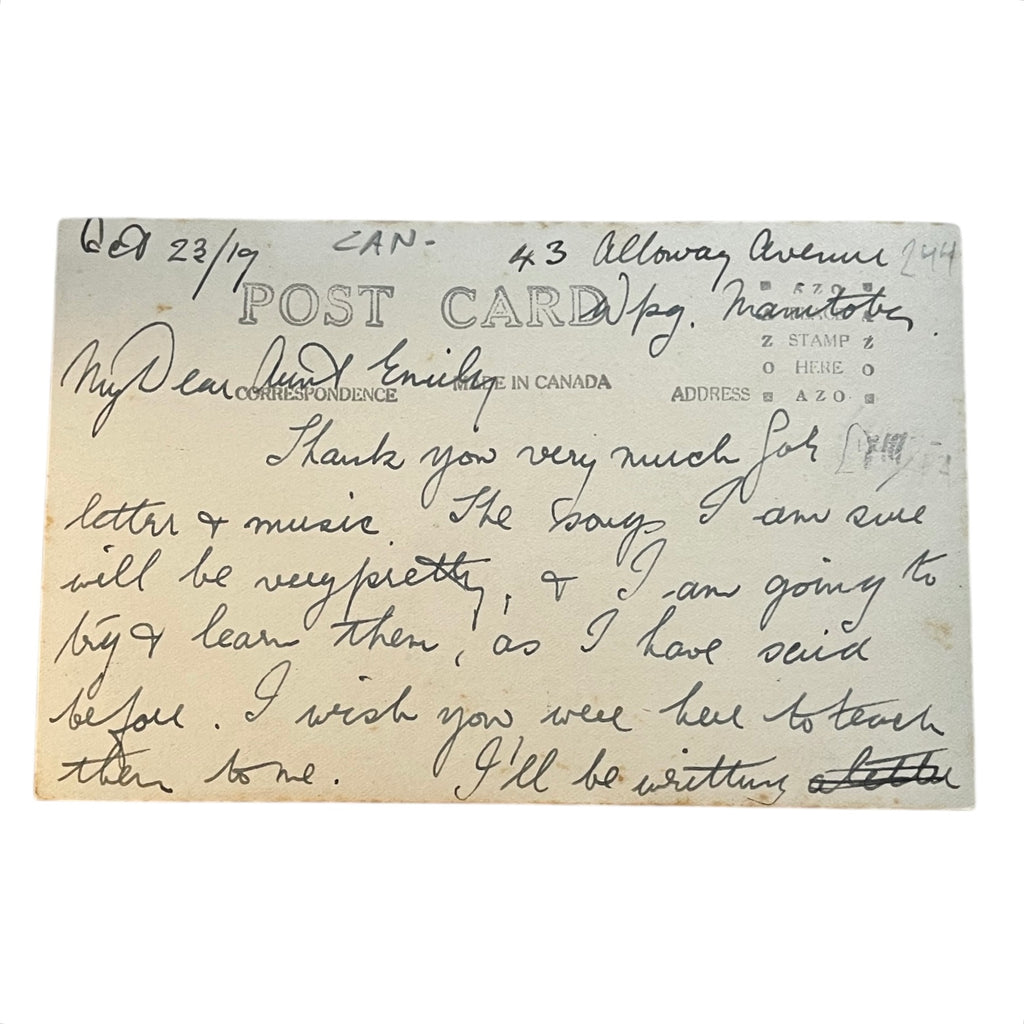 Oct 23/19 CAN- 43 Alloway Avenue 244
POST CARD Wpg. Manitoba.
AZO
STAMP
HERE
AZO
My Dear Aunt Emily
CORRESPONDENCE MADE IN CANADA ADDRESS
Thank you very much for
letter & music. The songs I am sure
will be very pretty, & I am going to
try & learn them, as I have said
before. I wish you were here to teach
them to me. I'll be writting a letter